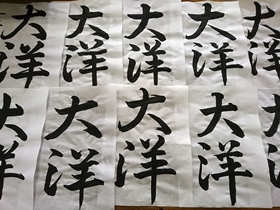 大洋
大洋
大洋
大洋
大洋
大洋
大洋
大洋
大洋